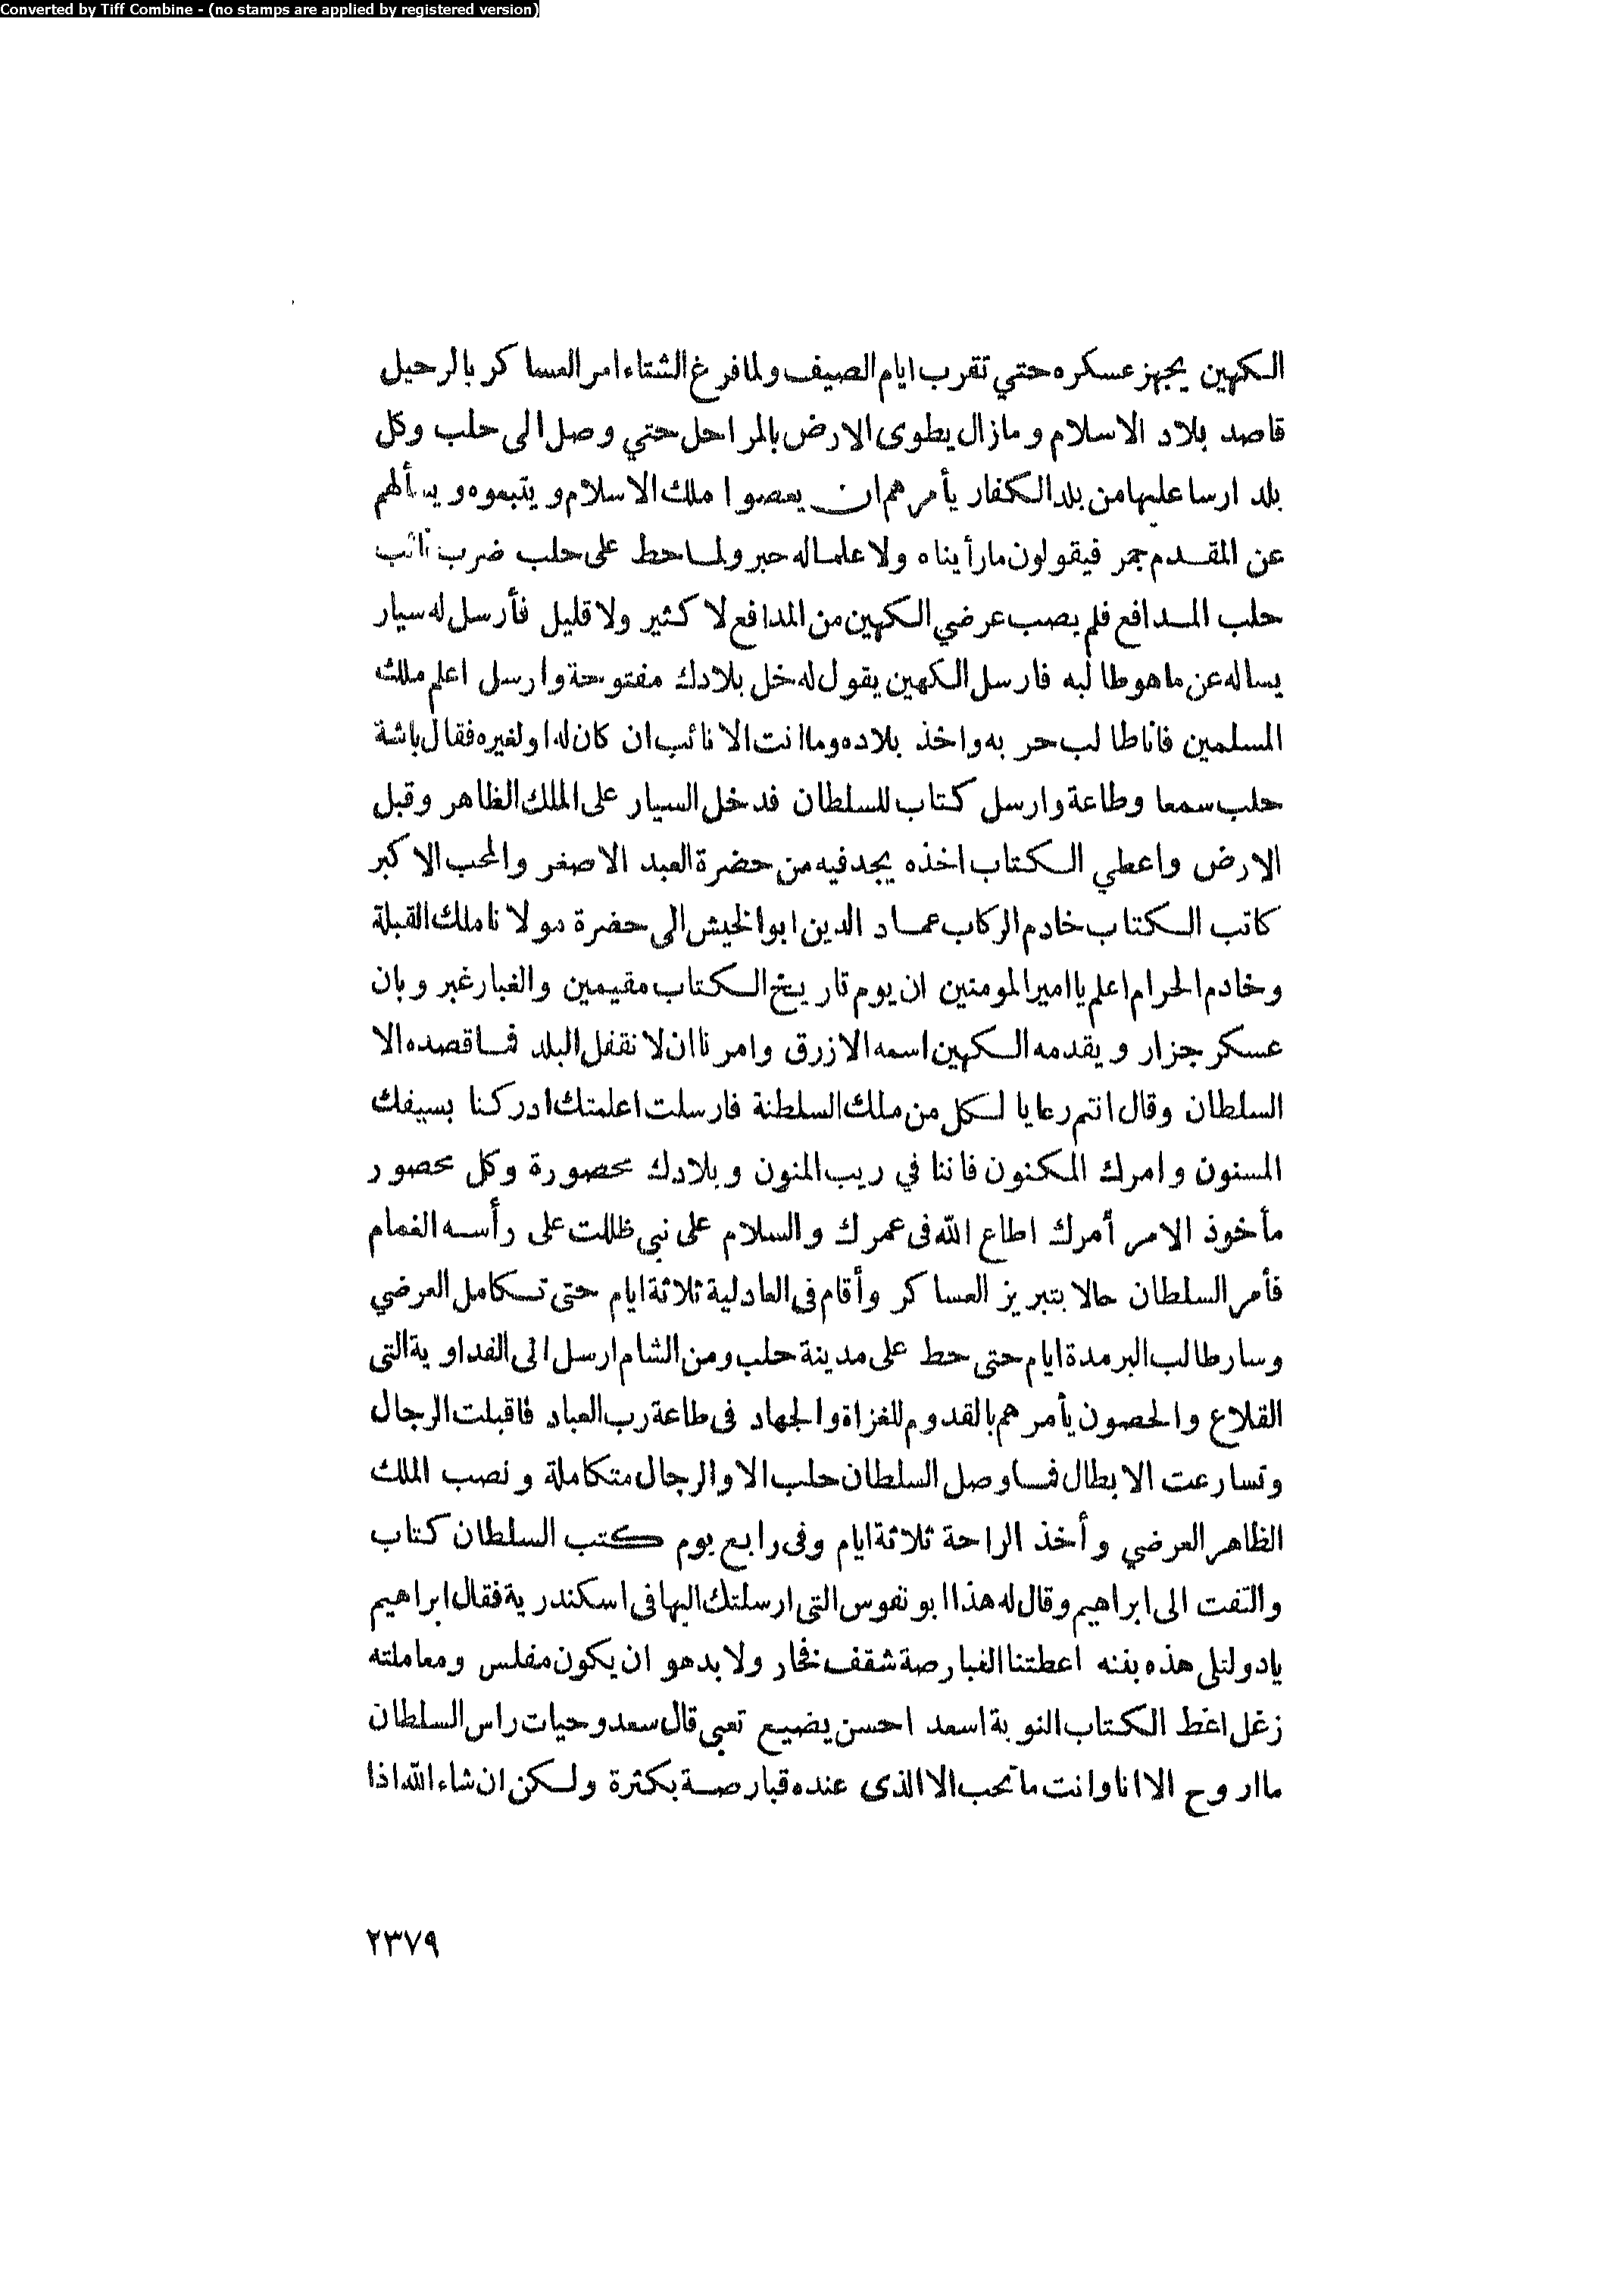 Converted by Tiff Combine - (no stamps are applied by registered version)
الكهين يجهز عسكره حتي تقرب ايام الصيف ولما فرغ الشتاء امر العساكر بالرحيل
قاصد بلاد الاسلام ومازال يطوى الارض بالمراحل حتي وصل الى حلب وكل
بلد ارسا عليها من بلد الكفار يأمرهم ان يعصوا ملك الاسلام ويتبعوه ويسألهم
عن المقدم جمر فيقولون مارأيناه ولا علمنا له خبر ولما حط على حلب ضرب نائب
حلب المدافع فلم يصب عرضي الكهين من المدافع لا كثير ولا قليل فأرسل له سيار
يساله عن ماهو طالبه فارسل الكهين يقول له خل بلادك مفتوحة وارسل اعلم ملك
المسلمين فانا طالب حربه واخذ بلاده وما انت الا نائب ان كان له او لغيره فقال باشة
حلب سمعا وطاعة وارسل كتاب للسلطان فدخل السيار على الملك الظاهر وقبل
الارض واعطي الكتاب اخذه يجد فيه من حضرة العبد الاصغر والمحب الاكبر
كاتب الكتاب خادم الركاب عماد الدين ابو الخيش الى حضرة مولانا ملك القبلة
وخادم الحرام اعلم يا امير المومنين ان يوم تاريخ الكتاب مقيمين والغبار غبر وبان
عسكر جزار ويقدمه الكهين اسمه الازرق وامرنا ان لا نقفل البلد فما قصده الا
السلطان وقال انتم رعايا لكل من ملك السلطنة فارسلت اعلمتك ادركنا بسيفك
المسنون وامرك المكنون فاننا في ريب المنون وبلادك محصورة وكل محصور
مأخوذ الامر أمرك اطاع الله فى عمرك والسلام على نبي ظللت على رأسه الغمام
فأمر السلطان حالا بتبريز العساكر وأقام فى العادلية ثلاثة ايام حتى تكامل العرضي
وسار طالب البر مدة ايام حتى حط على مدينة حلب ومن الشام ارسل الى الفداوية التى
القلاع والحصون يأمرهم بالقدوم للغزاة والجهاد فى طاعة رب العباد فاقبلت الرجال
وتسارعت الابطال فما وصل السلطان حلب الا والرجال متكاملة ونصب الملك
الظاهر العرضي وأخذ الراحة ثلاثة ايام وفى رابع يوم كتب السلطان كتاب
والتفت الى ابراهيم وقال له هذا ابو نفوس التى ارسلتك اليها فى اسكندرية فقال ابراهيم
يادولتلى هذه بفنه اعطتنا الغبارصة شقف فخار ولابد هو ان يكون مفلس ومعاملته
زغل اعط الكتاب النوبة اسعد احسن يضيع تعبي قال سعد وحيات راس السلطان
ما اروح الا انا وانت ما تحب الا الذى عنده قبارصة بكثرة ولكن ان شاء الله اذا
٢٣٧٩